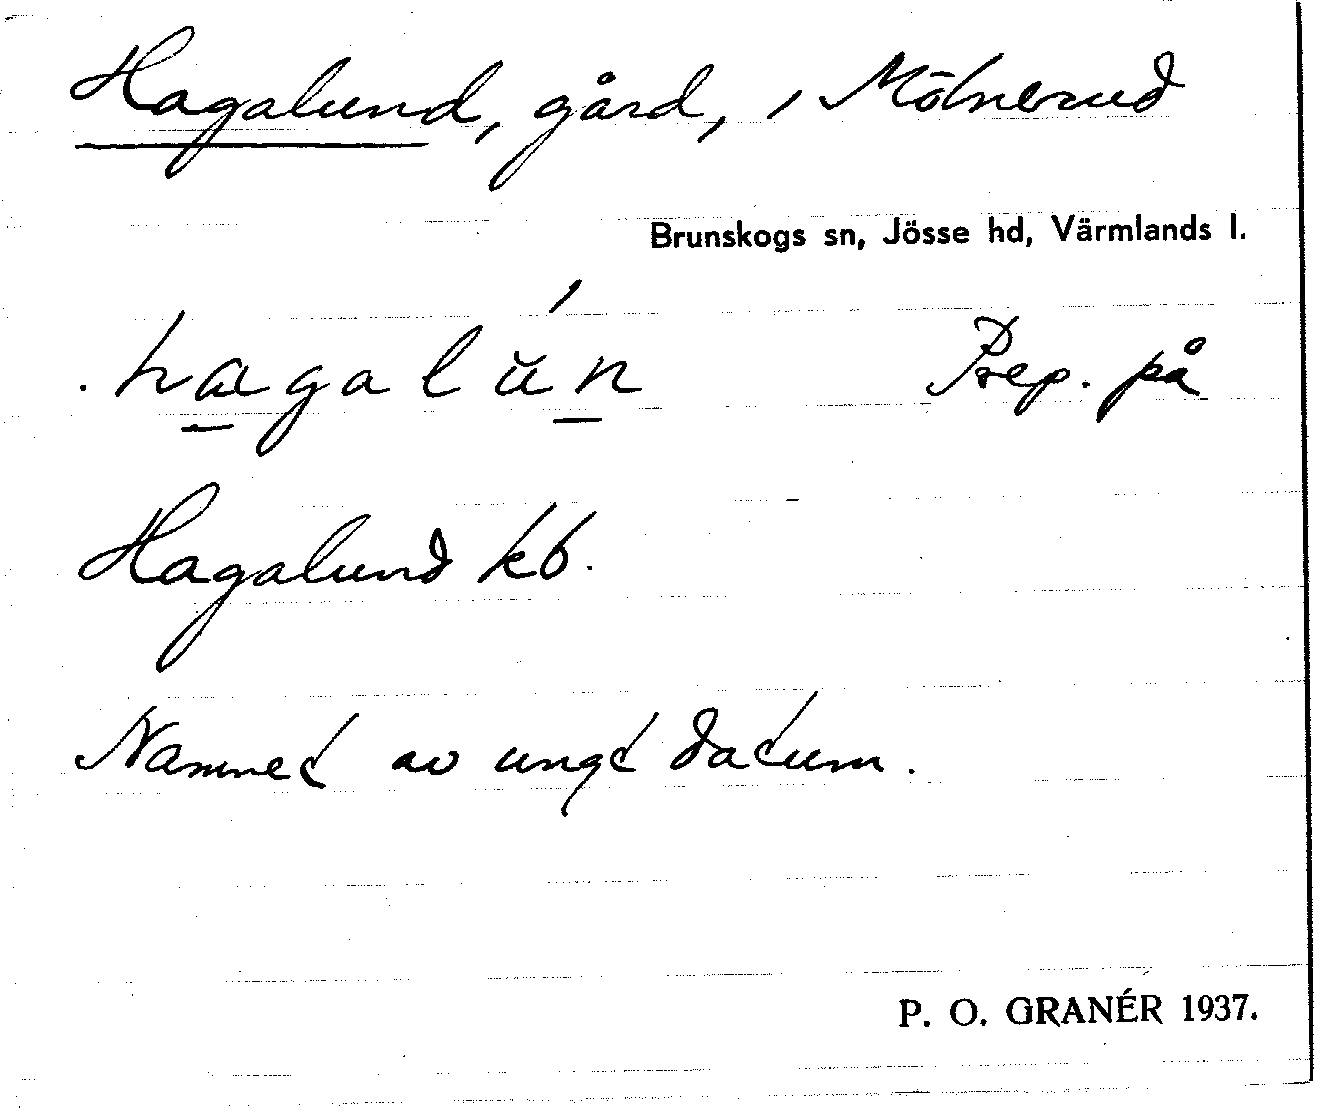 Hagalund, gård, i Mölnerud
Brunskogs sn, Jösse hd, Värmlands l.
hagalŭ́n Prep. på
Hagalund kb.
Namnet av ungt datum.
P. O. GRANÉR 1937.